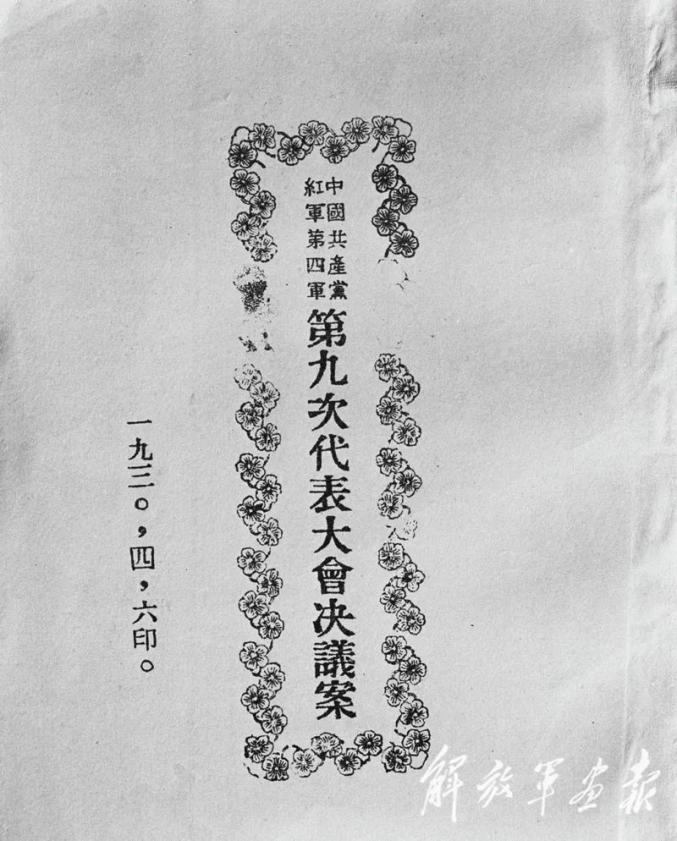 中國共產黨
紅軍第四軍
第九次代表大會决議案
一九三〇，四，六印。
解放军画报